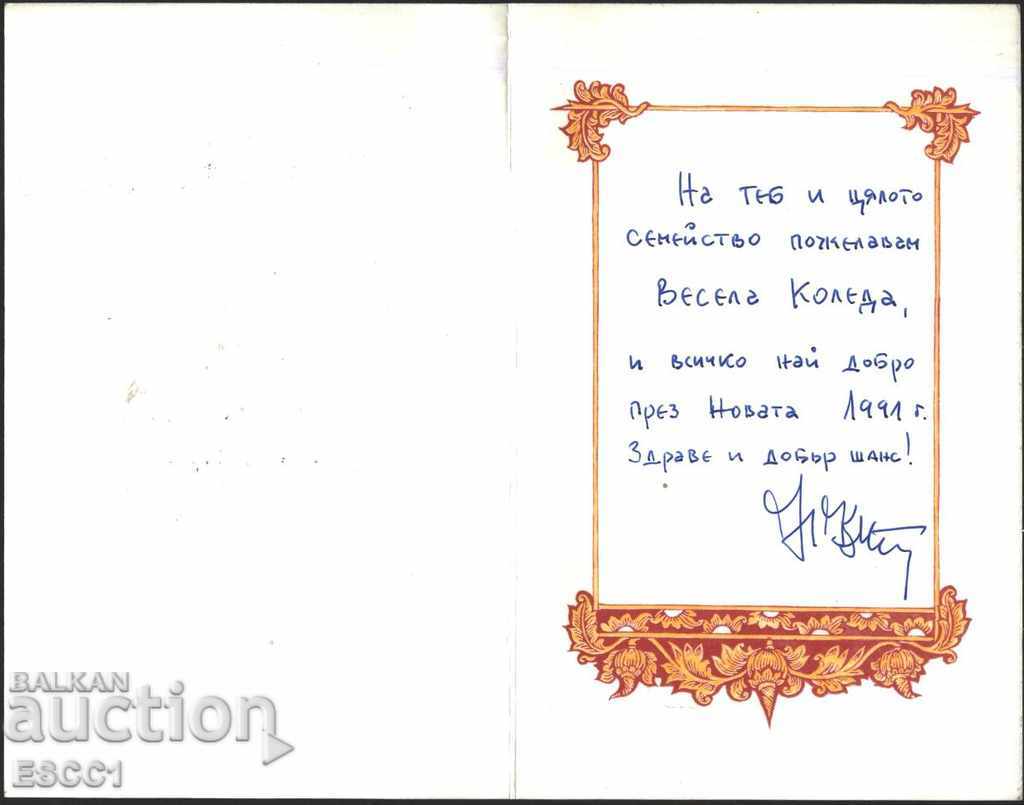 На теб и цялото
семейство пожелавам
Весела Коледа,
и всичко най добро
през Новата 1991 г.
Здраве и добър шанс!
BALKAN
auction
E3CC1